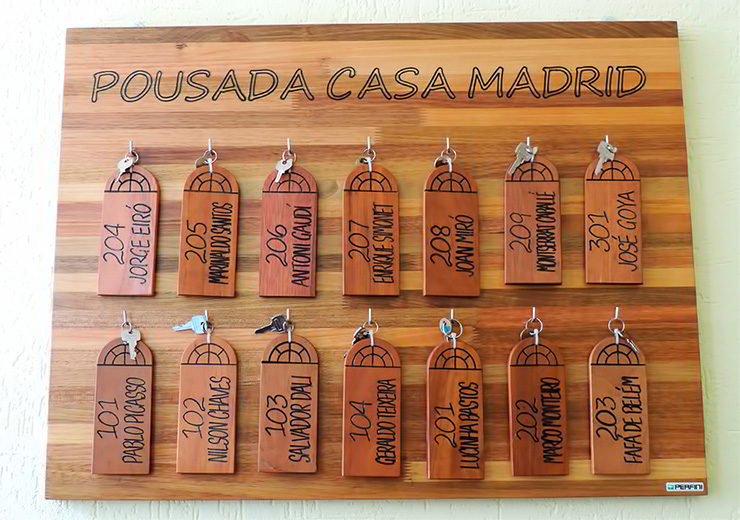 POUSADA CASA MADRID
204
JORGE EIRÓ
205
MARINALDO SANTOS
206
ANTONI GAUDÍ
207
ENRIQUE SIMONET
208
JOAN MIRÓ
209
MONTSERRAT CABALLÉ
301
JOSÉ GOYA
101
PABLO PICASSO
102
NILSON CHAVES
103
SALVADOR DALI
104
GERALDO TEIXEIRA
201
LUCINHA BASTOS
202
MARCO MONTEIRO
203
FAFÁ DE BELÉM
PERFINI